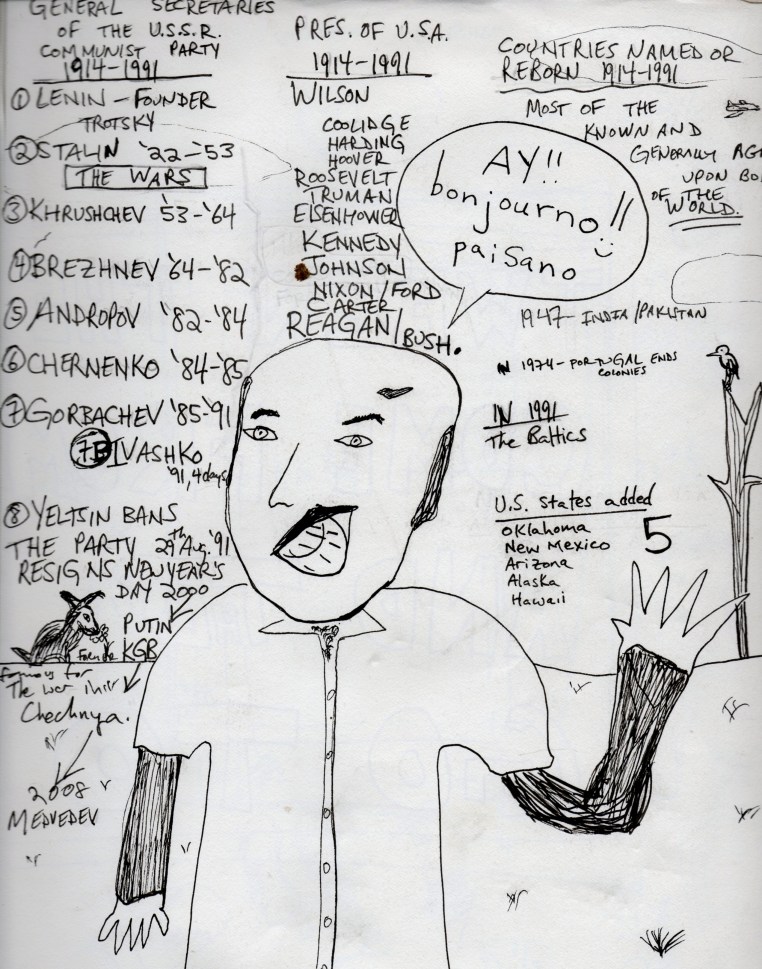 GENERAL SECRETARIES
OF THE U.S.S.R.
COMMUNIST PARTY
1914-1991
① LENIN - FOUNDER
TROTSKY
② STALIN '22-'53
THE WARS
③ KHRUSHCHEV '53-'64
④ BREZHNEV '64-'82
⑤ ANDROPOV '82-'84
⑥ CHERNENKO '84-'85
⑦ GORBACHEV '85-'91
7B IVASHKO
'91, 4 days
⑧ YELTSIN BANS
THE PARTY 29th Aug. '91
RESIGNS NEW YEAR'S
DAY 2000
PUTIN
KGB
famous for
The war in
Chechnya.
2008
MEDVEDEV
PRES. OF U.S.A.
1914-1991
WILSON
COOLIDGE
HARDING
HOOVER
ROOSEVELT
TRUMAN
EISENHOWER
KENNEDY
JOHNSON
NIXON/FORD
CARTER
REAGAN/BUSH.
AY!!
bonjourno!!
paisano
COUNTRIES NAMED OR
REBORN 1914-1991
MOST OF THE
KNOWN AND
GENERALLY AG
UPON BO
OF THE
WORLD.
1947- INDIA/PAKISTAN
IN 1974 - PORTUGAL ENDS
COLONIES
IN 1991
The Baltics
U.S. States added
5
Oklahoma
New Mexico
Arizona
Alaska
Hawaii